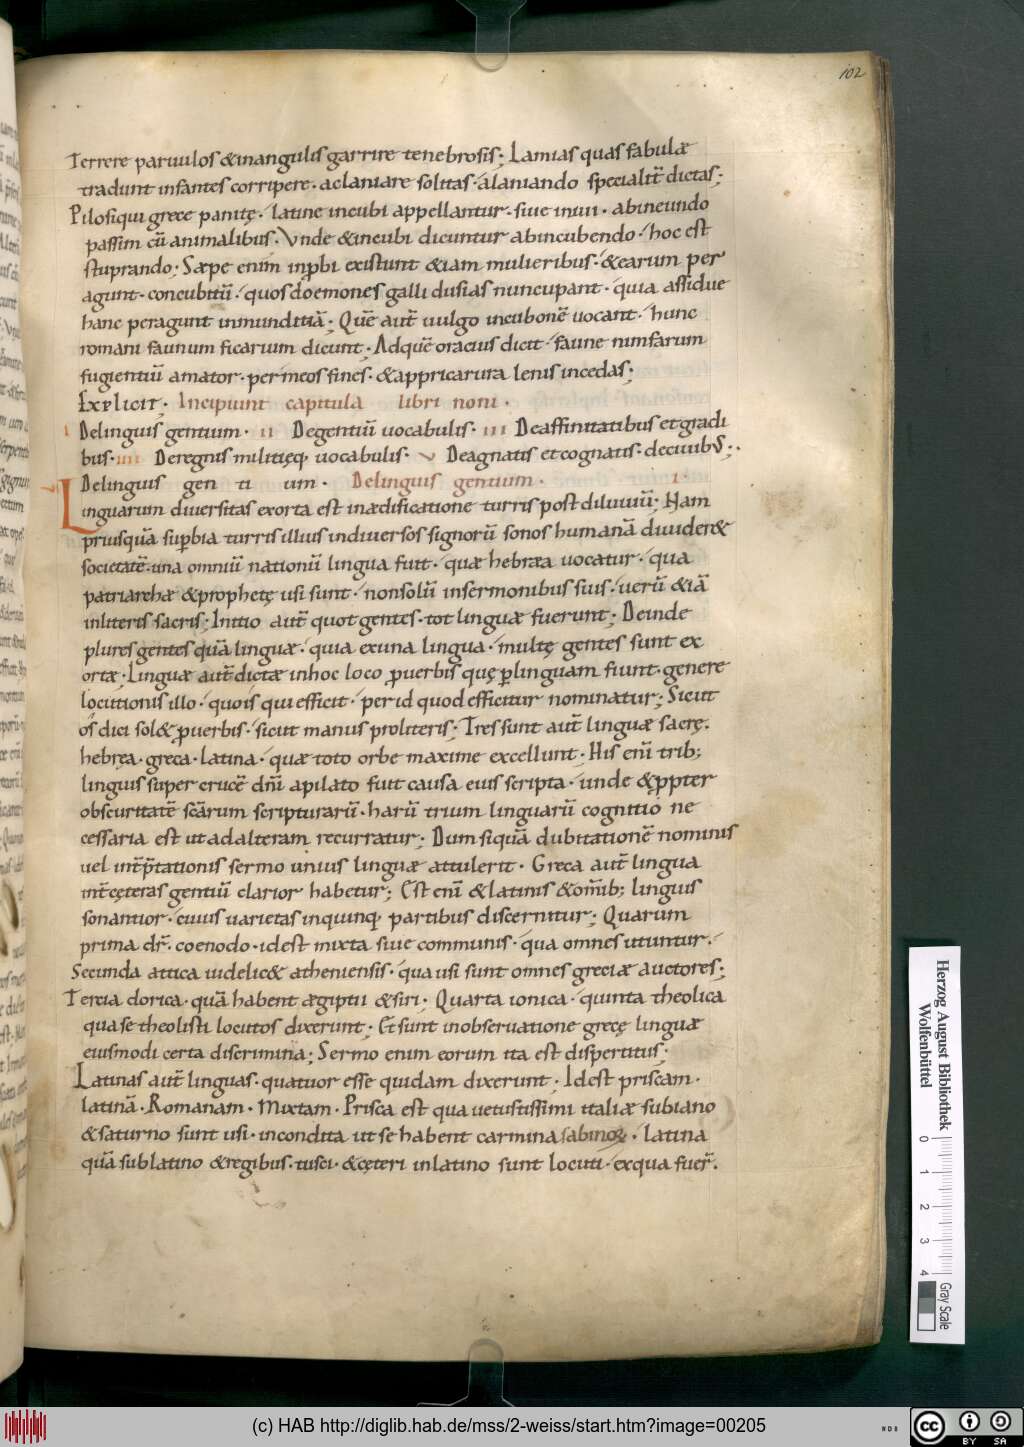 102
Terrere paruulos &inangulis garrire tenebrosis; Lamias quas fabulæ
tradunt infantes corripere· aclaniare solitas· alaniando specialit̄ dictas;
Pilosiqui grece panitę· latine incubi appellantur· siue inui· abineundo
passim cū animalibus· Vnde &incubi dicuntur abincubendo· hoc est
stuprando; Sæpe enim inp̱bi existunt &iam mulieribus· &earum per
agunt· concubitū· quos dœmones galli dusias nuncupant· quia assidue
hanc peragunt inmunditiā; Quē aut̄ uulgo incubonē uocant· hunc
romani faunum ficarium dicunt; Adquē oracius dicit· faune nimfarum
fugientiū amator· per meos fines· &appricarura lenis incedas;
Explicit; Incipiunt capitula libri noni·
i Delinguis gentium· ii Degentiū uocabulis· iii Deaffinitatibus etgradi
bus· iiii Deregnis militięq; uocabulis· v Deagnatis etcognatis· deciuibus;·
Delinguis gen ti um· Delinguis gentium· i·
Linguarum diuersitas exorta est inædificatione turris post diluuiū; Nam
priusquā sup̱bia turris illius indiuersos signorū sonos humanā diuider&
societatē· una omniū nationū lingua fuit· quæ hebræa uocatur· qua
patriarchæ &prophetę usi sunt· nonsolū insermonibus suis· uerū &iā
inliteris sacris; Initio aut̄ quot gentes· tot linguæ fuerunt; Deinde
plures gentes quā linguæ· quia exuna lingua· multę gentes sunt ex
ortæ; Linguæ aut̄ dictæ inhoc loco ꝓuerbis quę p̱linguam fiunt· genere
locutionis illo· quo is qui efficit· per id quod efficitur nominatur; Sicut
os dici sol& ꝓuerbis· sicut manus proliteris; Tres sunt aut̄ linguæ sacrę·
hebręa· greca· latina· quæ toto orbe maxime excellunt· His enī trib;
linguis super crucē dn̄i apilato fuit causa eius scripta· unde &ꝓpter
obscuritatē scārum scripturarū· harū trium linguarū cognitio ne
cessaria est ut adalteram recurratur; Dum siquā dubitationē nominis
uel int̄p̄tationis sermo unius linguæ attulerit· Greca aut̄ lingua
int̄cęteras gentiū clarior habetur; Est enī &latinis &om̄ib; linguis
sonantior· cuius uarietas inquinq; partibus discernitur; Quarum
prima dr̄· coenodo· idest mixta siue communis· qua omnes utuntur·
Secunda attica uidelic& atheniensis· qua usi sunt omnes greciæ auctores;
Tercia dorica· quā habent ægiptii &siri· Quarta ionica· quinta theolica
qua se theolisti locutos dixerunt; Et sunt inobseruatione grecę linguæ
eiusmodi certa discrimina; Sermo enim eorum ita est dispertitus;
Latinas aut̄ linguas· quatuor esse quidam dixerunt; Idest priscam·
latinā· Romanam· Mixtam· Prisca est qua uetustissimi italiæ sub iano
&saturno sunt usi· incondita ut se habent carmina sabinoꝝ· latina
quā sub latino &regibus· tusci· &cęteri inlatino sunt locuti· exqua fuer̄·
Herzog August Bibliothek
Wolfenbüttel
0 1 2 3 4
Gray Scale
(c) HAB http://diglib.hab.de/mss/2-weiss/start.htm?image=00205
cc BY SA